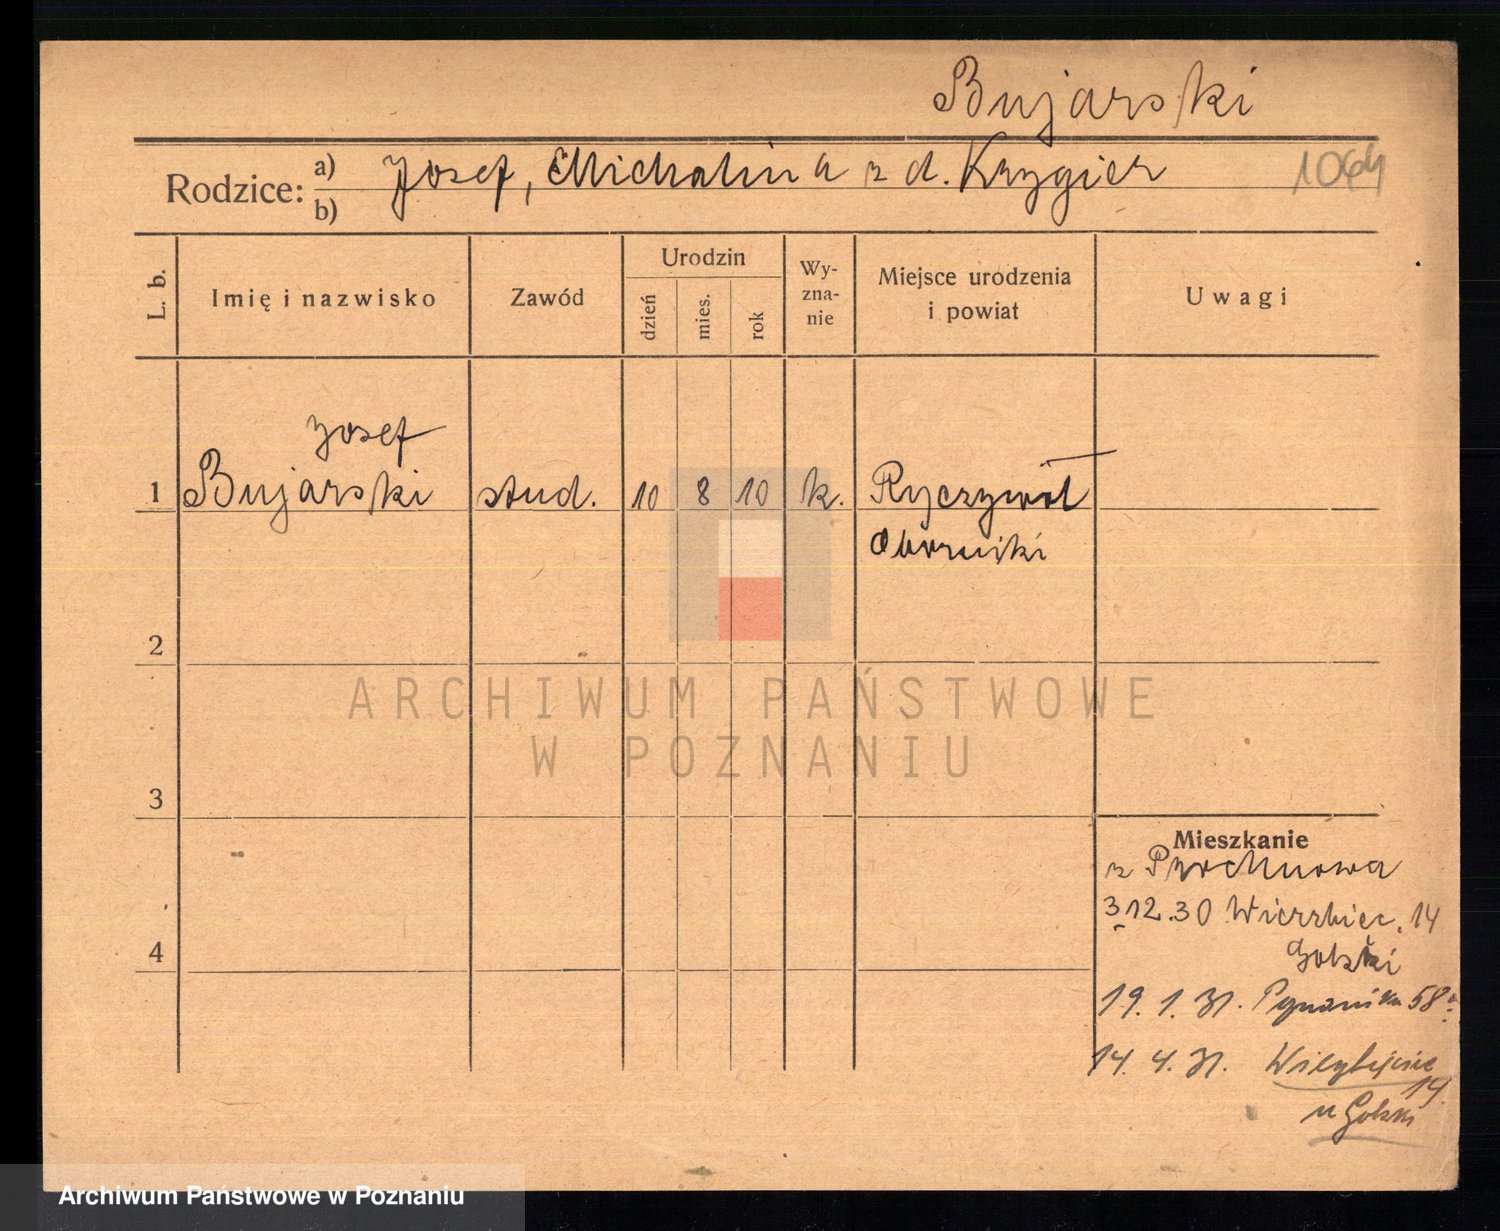 Bujarski
Rodzice: a) b) Josef, Michalina z d. Krygier 1064
L. b. Imię i nazwisko Zawód Urodzin dzień mies. rok Wy-zna-nie Miejsce urodzenia i powiat Uwagi
Josef
1 Bujarski stud. 10 8 10 k. Ryczywół
Oborniki
2
ARCHIWUM PAŃSTWOWE
W POZNANIU
3
Mieszkanie
z
3.12.30 Wierzbiec. 14
Golski
4
19. 1. 31. 58a
14. 4. 31. 14.
u Golski
Archiwum Państwowe w Poznaniu